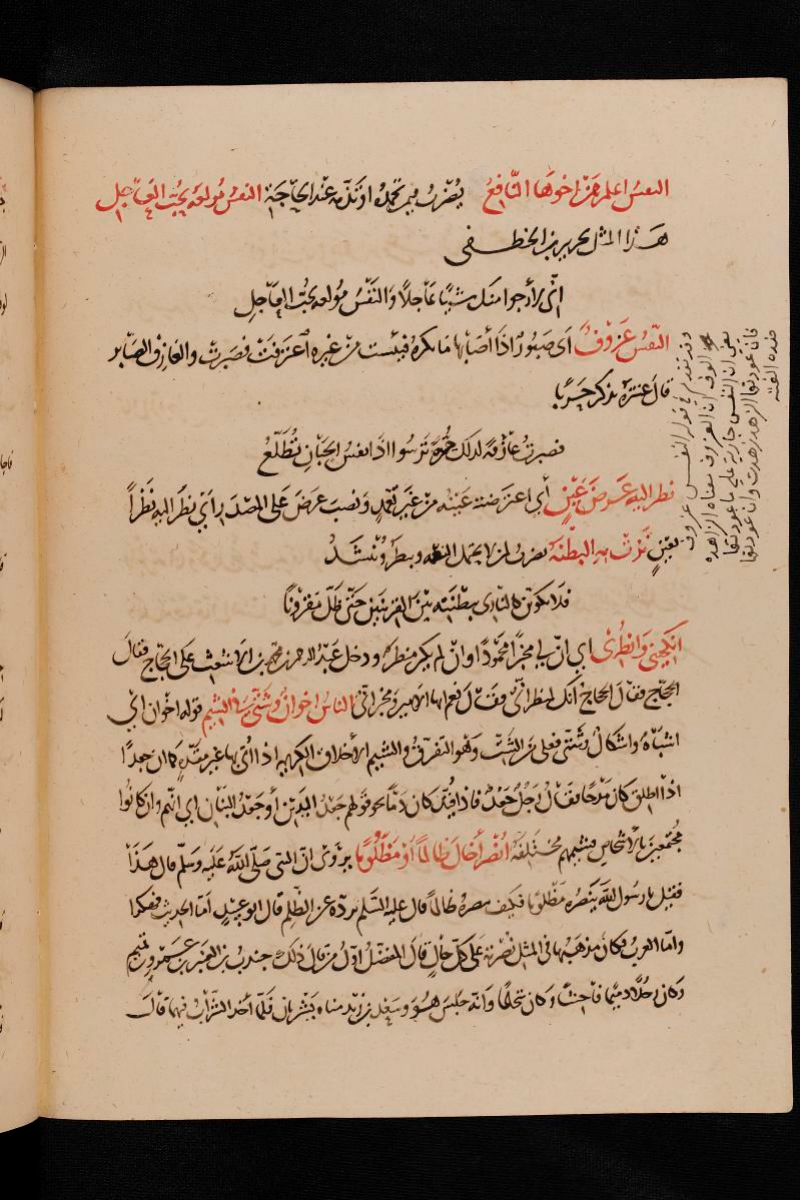 النفس اعلم من اخوها النافع يضرب فيمن تحمده او تذمه عند الحاجة النفس مولعه بحب العاجل
هذا المثل لجرير بن الخطفي
انّي لأرجو منك شيئا عاجلا والنفس مولعه بحب العاجل
النفس عزوف اى صبور اذا أصابها ما تكره فيئست من خير اعترفت فصبرت والعازف الصابر
قال عنترة يذكر حربا
فصبرت عازفة لذلك حرة ترسوا اذا نفس الجبان تطلع
نظر اليه عرض عين أي اعترضته عينه من غير تعمد ونصب عرض على المصدر أي نظر اليه نظرا
بعين نزت به البطنة يضرب لمن لا يحتمل النعمة ويبطر وينشد
فلا تكونن كالنازي ببطنته بين القرينين حتى ظل مقرونا
انكحيني وانظري اي انّ لي مخبرا محمودا وان لم يكن منظر ودخل عبد الرحمن بن محمد بن الاشعث على الحجاج فقال
الحجاج فقال الحجاج انك لمنظرانيّ فقال نعم ايها الامير ومخبراني الناس اخوان وشتى في الشيم قوله اخوان اي
اشباه واشكال وشتى فعلى من الشت وهو التفرق والشيم الأخلاق الكريمه اذا أتى بها غير مقيده كما ان جعدا
اذا اطلق كان مدحا يقال رجل جعد فاذا قيد كان ذما نحو قولهم جعد اليدين أو جعد البنان اي انهم وان كانوا
مجتمعين بالاشخاص فشيمهم مختلفة انصر أخاك ظالما أو مظلوما يروى ان النبي صلى الله عليه وسلم قال هذا
فقيل يا رسول الله ينصره مظلوما فكيف ينصره ظالما قال عليه السلم يرده عن الظلم قال ابو عبيد اما الحديث فهكذا
واما العرب فكان مذهبها في المثل نصرته على كل حال قال المفضل اول من قال ذلك جندب بن العنبر بن عمرو بن تميم
وكان رجلا دميما فاحشا وكان شجاعا وانه جلس هو وسعد بن زيد مناه يشربان فلما أخذ الشراب فيهما قال
وقد تقدم في قوله النفس عزوف
الوف ان العزوف معناه الزاهده
يعنى ان النفس جارية على ما عودتها
فان عودتها الزهد زهدت وان عودتها
ضده الفته